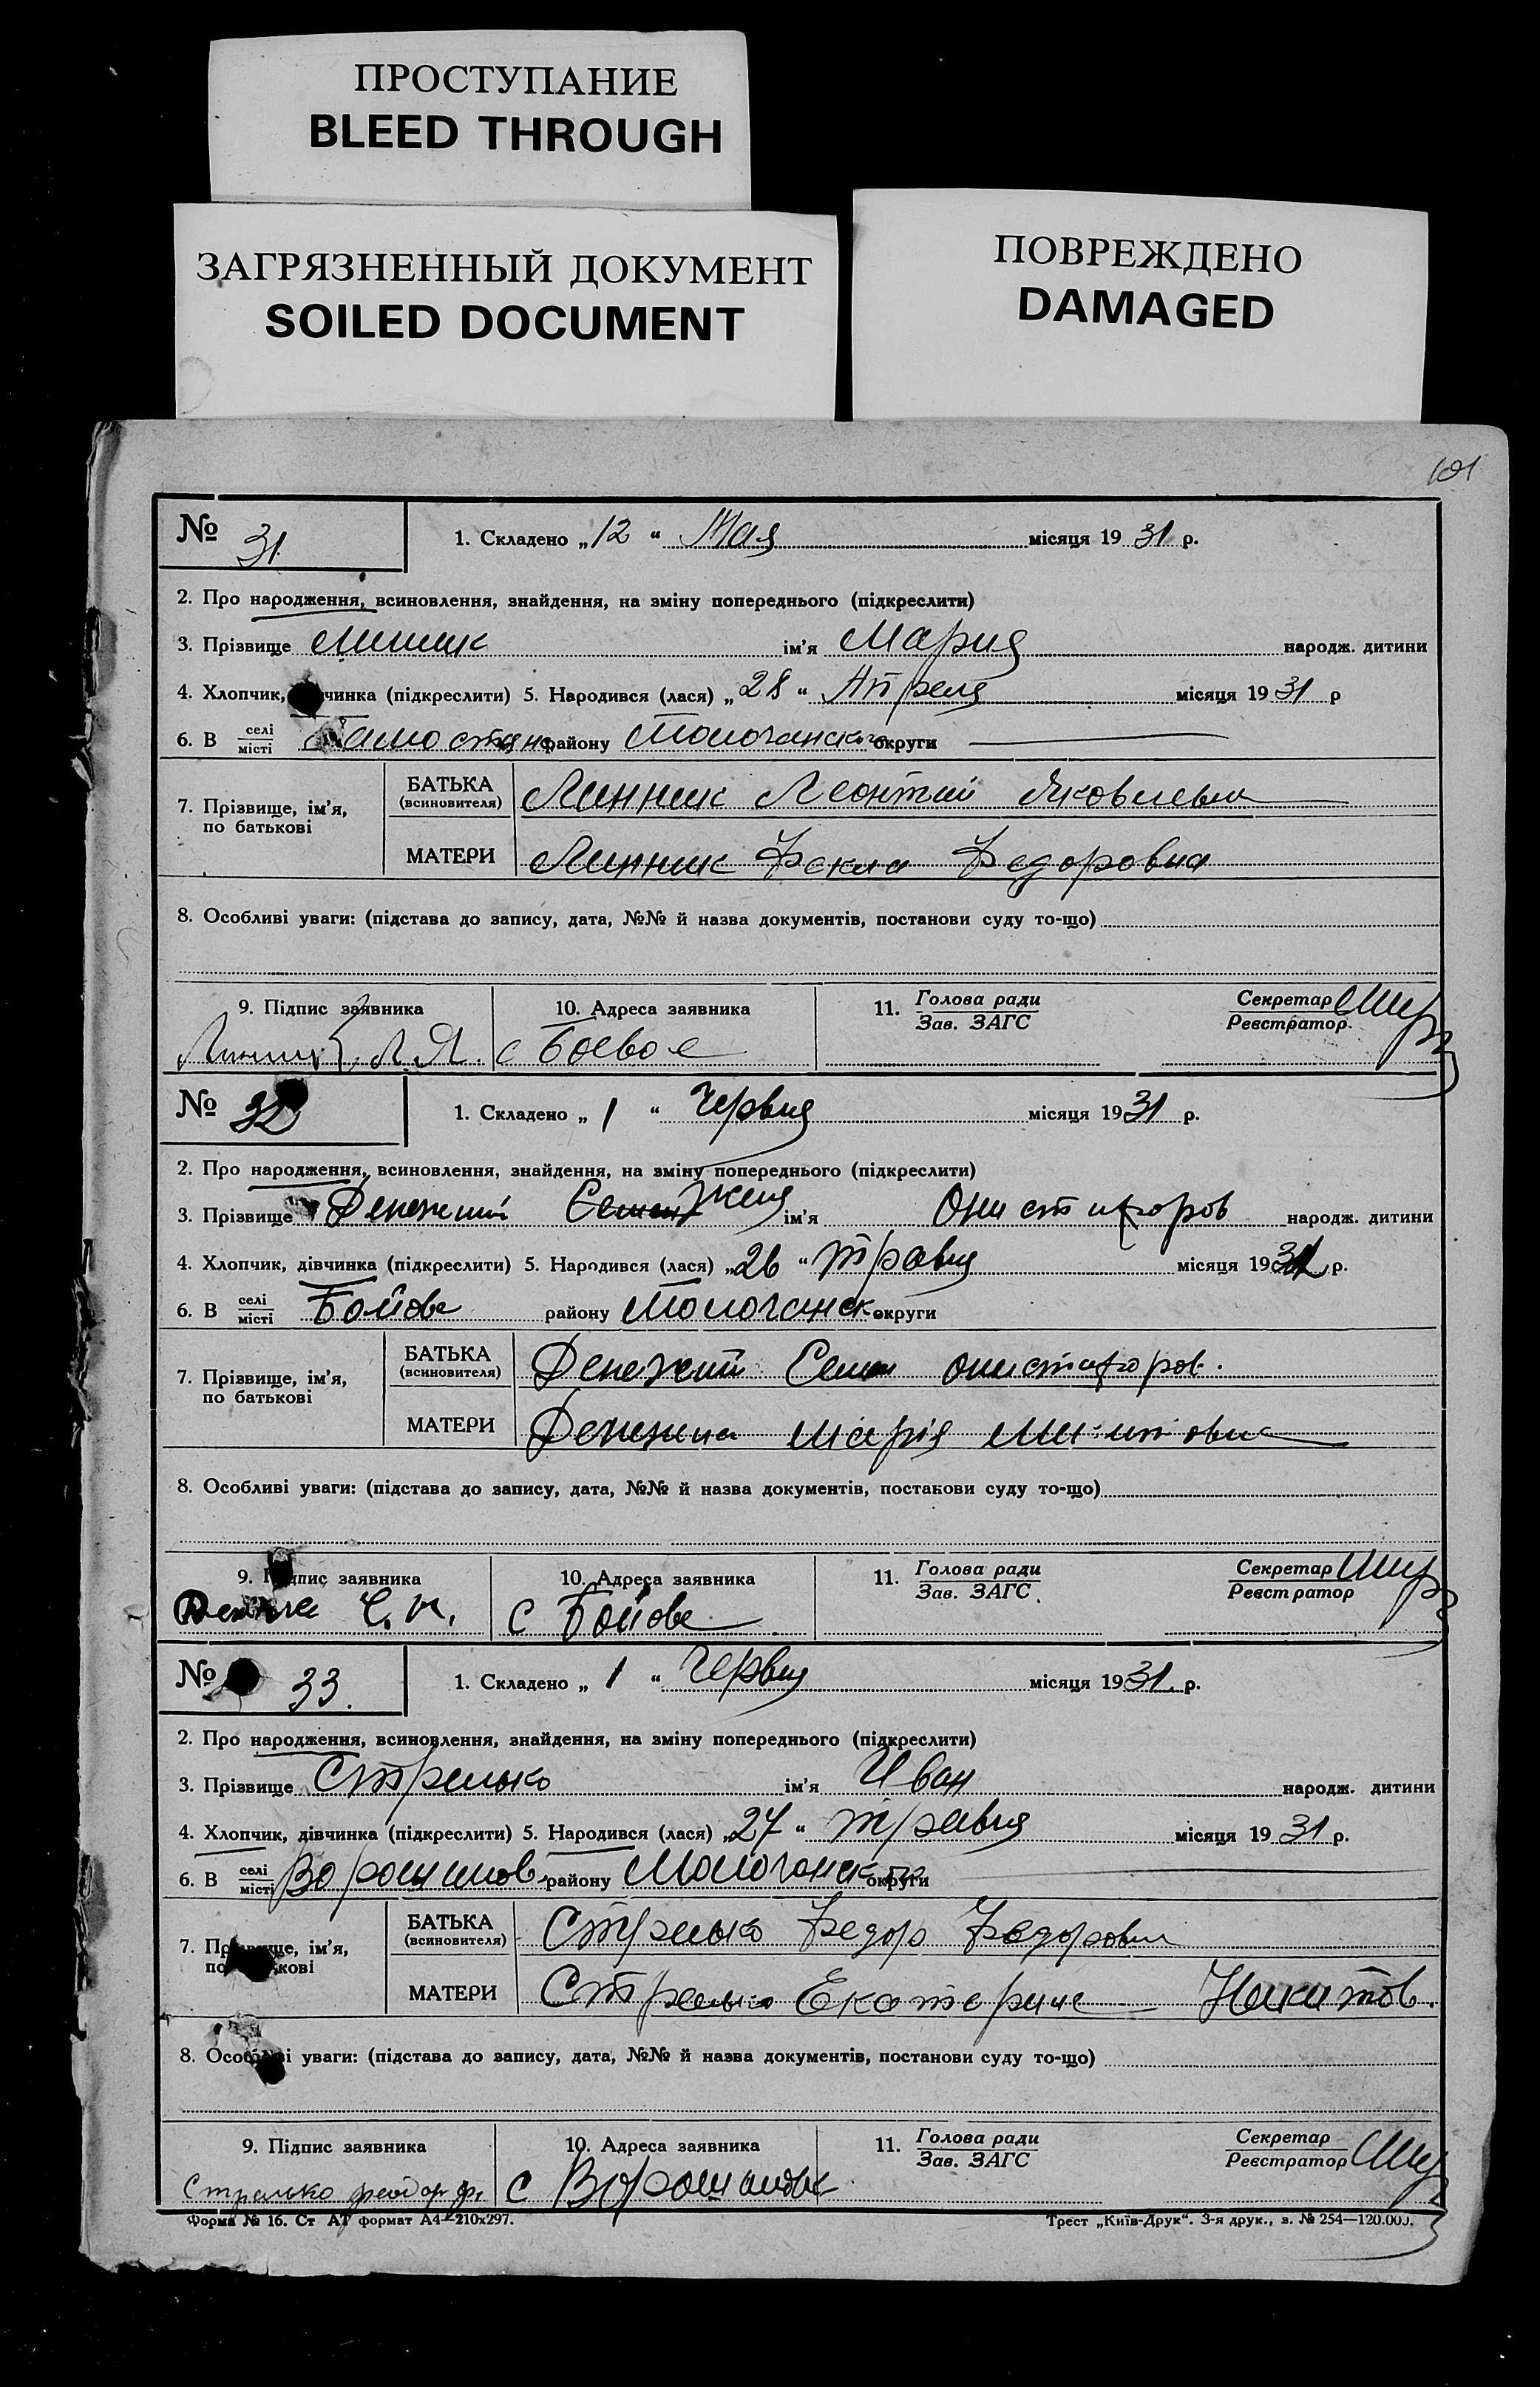 ПРОСТУПАНИЕ
BLEED THROUGH
ЗАГРЯЗНЕННЫЙ ДОКУМЕНТ
SOILED DOCUMENT
ПОВРЕЖДЕНО
DAMAGED
101
№ 31. 1. Складено „12“ Мая місяця 1931 р.
2. Про народження, всиновлення, знайдення, на зміну попереднього (підкреслити)
3. Прізвище Линник ім'я Мария народж. дитини
4. Хлопчик, чинка (підкреслити) 5. Народився (лася) „28“ Апреля місяця 1931 р
6. В селі місті району Молочанского округи
7. Прізвище, ім'я, по батькові
БАТЬКА (всиновителя) Линник Леонтий Яковлевич
МАТЕРИ Линник Фекла Федоровна
8. Особливі уваги: (підстава до запису, дата, №№ й назва документів, постанови суду то-що)
9. Підпис заявника 10. Адреса заявника 11. Голова ради Зав. ЗАГС Секретар Реєстратор.
Линник Л. Я. с Боевое
№ 32 1. Складено „1“ Червня місяця 1931 р.
2. Про народження, всиновлення, знайдення, на зміну попереднього (підкреслити)
3. Прізвище Денежний Женя ім'я Онистифоров народж. дитини
4. Хлопчик, дівчинка (підкреслити) 5. Народився (лася) „26“ травня місяця 1931 р.
6. В селі місті Бойове району Молочанск округи
7. Прізвище, ім'я, по батькові
БАТЬКА (всиновителя) Онистифоров.
МАТЕРИ Денежна Марія
8. Особливі уваги: (підстава до запису, дата, №№ й назва документів, постанови суду то-що)
9. П дпис заявника 10. Адреса заявника 11. Голова ради Зав. ЗАГС. Секретар Реєстратор
с Бойове
№ 33. 1. Складено „1“ Червня місяця 1931. р.
2. Про народження, всиновлення, знайдення, на зміну попереднього (підкреслити)
3. Прізвище Стрелько ім'я Иван народж. дитини
4. Хлопчик, дівчинка (підкреслити) 5. Народився (лася) „27“ травня місяця 1931 р.
6. В селі місті Ворошилов. району Молочанск округи
7. Пр ще, ім'я, по кові
БАТЬКА (всиновителя) Стрелько Федор Федорович
МАТЕРИ Стрелько Екатерина Никитов.
8. Особливі уваги: (підстава до запису, дата, №№ й назва документів, постанови суду то-що)
9. Підпис заявника 10. Адреса заявника 11. Голова ради Зав. ЗАГС Секретар Реєстратор
Стрелко Феодор Ф. с
Форма № 16. Ст АТ формат А4—210х297. Трест „Київ-Друк“. 3-я друк., з. № 254—120.000.